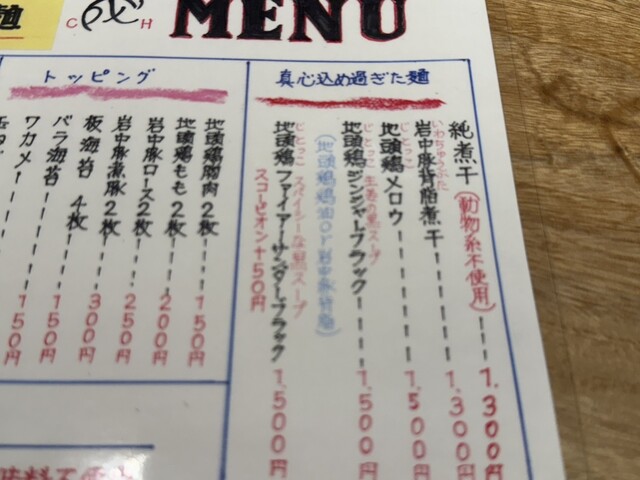 麺
C H
MENU
真心込め過ぎた麺
純煮干(動物系不使用)---1,300円
いわちゅうぶた
岩中豚背脂煮干---1,300円
じとっこ
地頭鶏メロウ-----1,500円
じとっこ 生姜の黒スープ
地頭鶏ジンジャーブラック---1,500円
(地頭鶏鶏油or岩中豚背脂)
じとっこ スパイシーな黒スープ
地頭鶏ファイアーサンダーブラック 1,500円
スコーピオン+50円
トッピング
地頭鶏胸肉2枚---150円
地頭鶏もも2枚---200円
岩中豚ロース2枚---200円
岩中豚燻豚2枚---250円
板海苔 4枚---300円
バラ海苔-----150円
ワカメ------150円